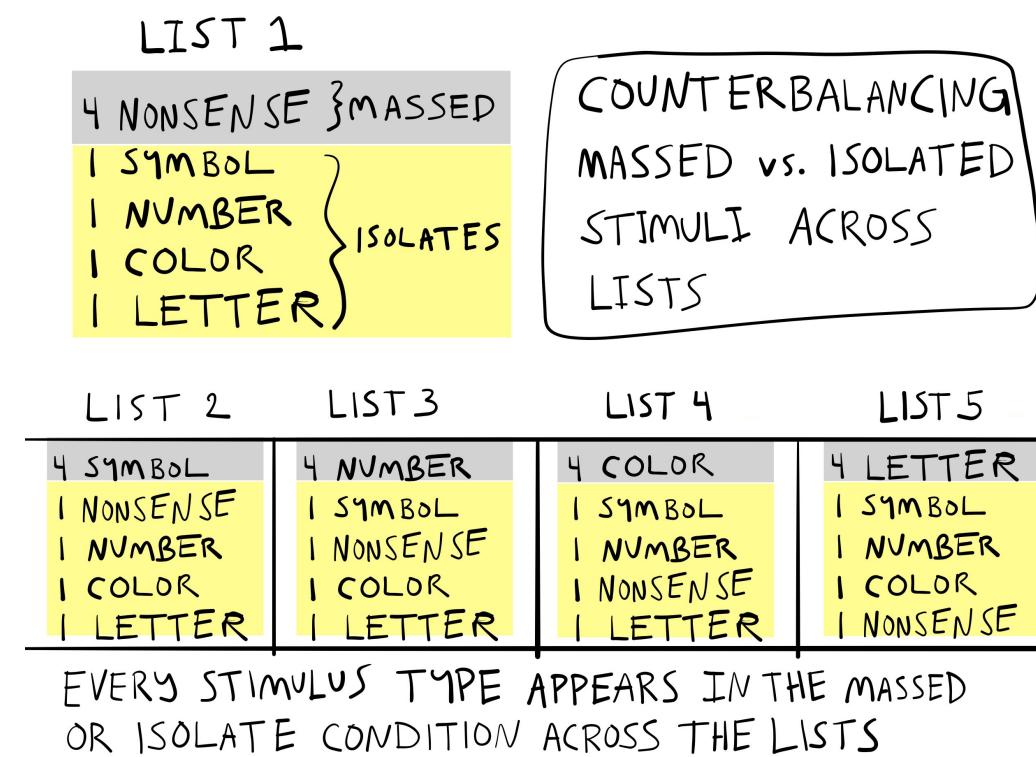 LIST 1
4 NONSENSE }MASSED
1 SYMBOL
1 NUMBER
ISOLATES
1 COLOR
1 LETTER
COUNTERBALANCING
MASSED vs. ISOLATED
STIMULI ACROSS
LISTS
LIST 2
4 SYMBOL
1 NONSENSE
1 NUMBER
1 COLOR
1 LETTER
LIST 3
4 NUMBER
1 SYMBOL
1 NONSENSE
1 COLOR
1 LETTER
LIST 4
4 COLOR
1 SYMBOL
1 NUMBER
1 NONSENSE
1 LETTER
LIST 5
4 LETTER
1 SYMBOL
1 NUMBER
1 COLOR
1 NONSENSE
EVERY STIMULUS TYPE APPEARS IN THE MASSED
OR ISOLATE CONDITION ACROSS THE LISTS